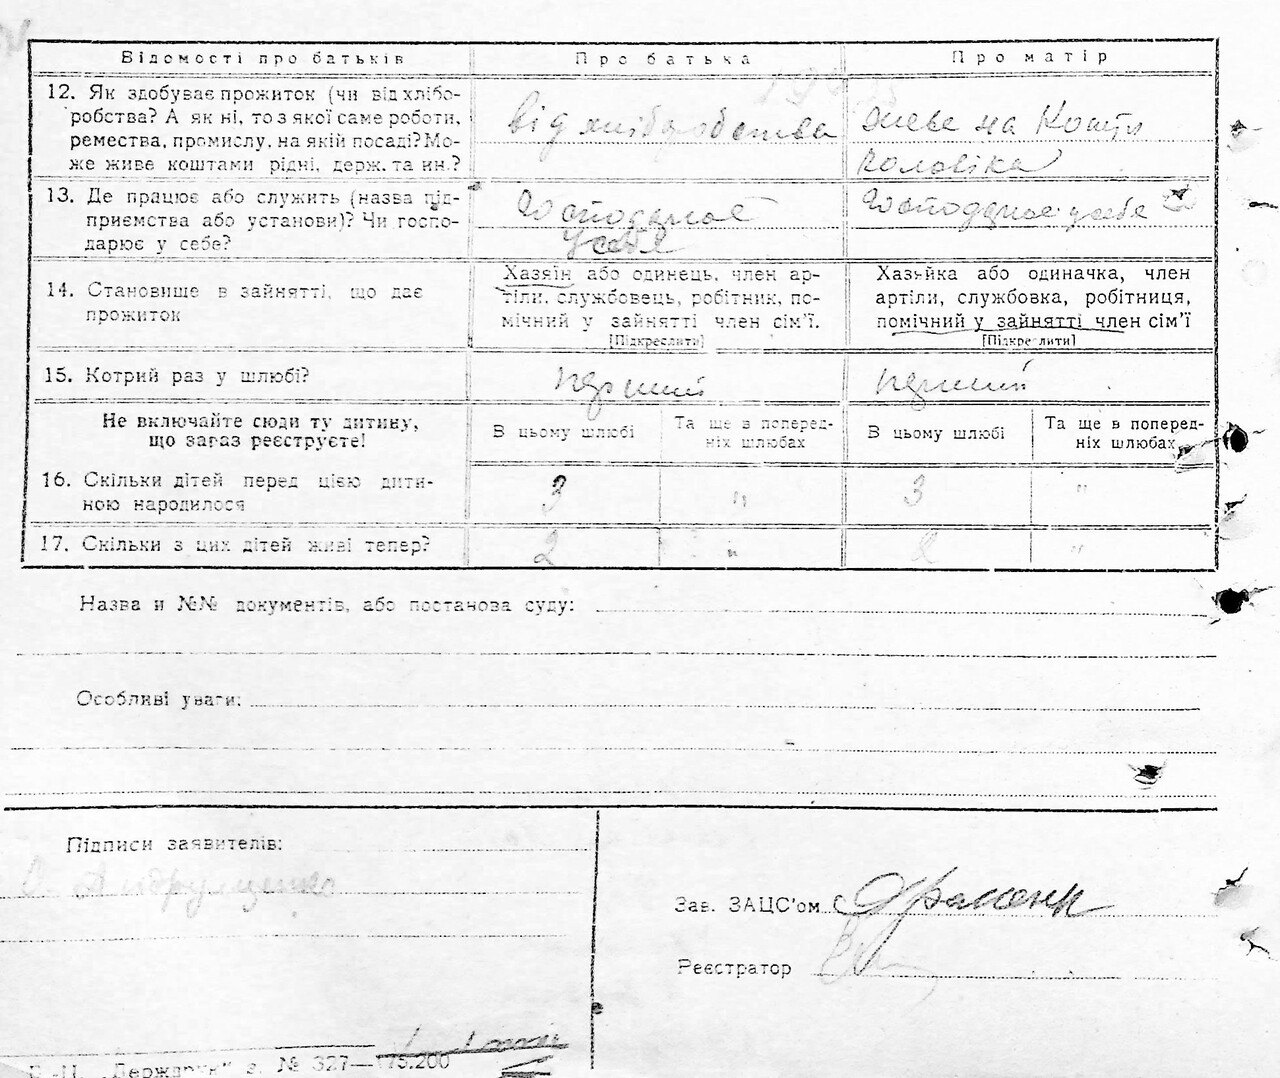 Відомості про батьків
Про батька
Про матір
12. Як здобуває прожиток (чи від хлібо-
робства? А як ні, то з якої саме роботи,
ремества, промислу, на якій посаді? Мо-
же живе коштами рідні, держ. та ин.?
від хліборобства
живе на кошти
чоловіка
13. Де працює або служить (назва під-
приємства або установи)? Чи госпо-
дарює у себе?
Господарює
у себе
Господарює у себе
14. Становище в зайнятті, що дає
прожиток
Хазяїн або одинець, член ар-
тіли, службовець, робітник, по-
мічний у зайнятті член сім'ї.
[Підкреслити]
Хазяйка або одиначка, член
артіли, службовка, робітниця,
помічний у зайнятті член сім'ї
[Підкреслити]
15. Котрий раз у шлюбі?
перший
перший
Не включайте сюди ту дитину,
що зараз реєструєте!
В цьому шлюбі
Та ще в поперед-
ніх шлюбах
В цьому шлюбі
Та ще в поперед-
ніх шлюбах
16. Скільки дітей перед цією дити-
ною народилося
3
"
3
"
17. Скільки з цих дітей живі тепер?
2
"
2
"
Назва и №№ документів, або постанова суду:
Особливі уваги:
Підписи заявителів:
Андрущенко
Зав. ЗАЦС'ом
Реєстратор
"Держдрук" з. № 327—175.200